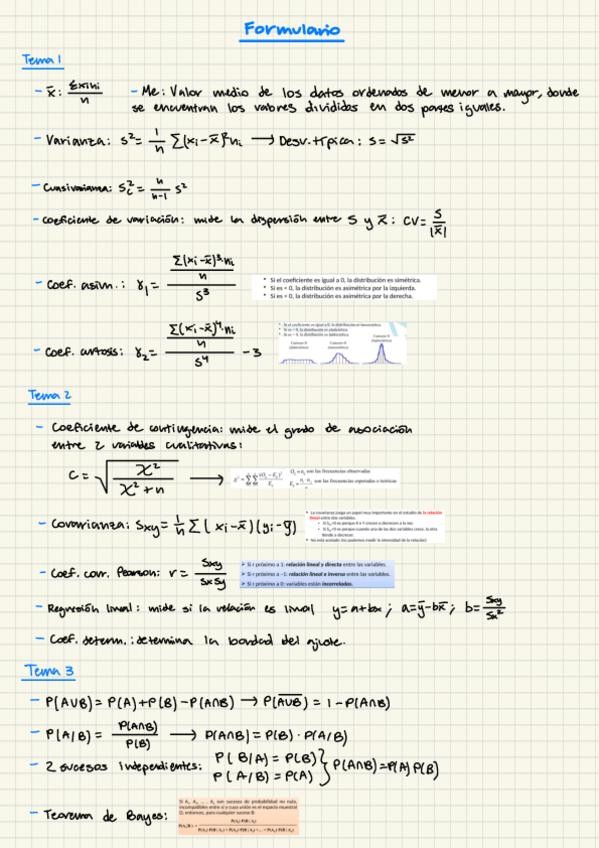 Formulario
Tema 1
- x̄: Σxini/n
- Me: Valor medio de los datos ordenados de menor a mayor, donde
se encuentran los valores divididos en dos partes iguales.
- Varianza: s² = 1/n Σ(xi-x̄)²ni → Desv. típica: s = √s²
- Cuasivarianza: Sc² = n/n-1 s²
- Coeficiente de variación: mide la dispersión entre S y x̄: CV = S/|x̄|
- Coef. asim.: γ1 = (Σ(xi-x̄)³·ni/n)/S³
• Si el coeficiente es igual a 0, la distribución es simétrica.
• Si es < 0, la distribución es asimétrica por la izquierda.
• Si es > 0, la distribución es asimétrica por la derecha.
- Coef. curtosis: γ2 = (Σ(xi-x̄)⁴·ni/n)/S⁴ - 3
Tema 2
- Coeficiente de contingencia: mide el grado de asociación
entre 2 variables cualitativas:
C = √(χ²/(χ²+n)) →
son las frecuencias observadas
son las frecuencias esperadas o teóricas
- Covarianza: Sxy = 1/n Σ(xi-x̄)(yi-ȳ)
• La covarianza juega un papel muy importante en el estudio de la relación
lineal entre dos variables.
- Coef. corr. Pearson: r = Sxy/SxSy
➢ Si r próximo a 1: relación lineal y directa entre las variables.
➢ Si r próximo a -1: relación lineal e inversa entre las variables.
➢ Si r próximo a 0: variables están incorreladas.
- Regresión lineal: mide si la relación es lineal y=a+bx; a=ȳ-bx̄; b=Sxy/Sx²
- Coef. determ.: determina la bondad del ajuste.
Tema 3
- P(A∪B) = P(A)+P(B)-P(A∩B) → P(A̅∪̅B̅) = 1-P(A∩B)
- P(A/B) = P(A∩B)/P(B) → P(A∩B) = P(B)·P(A/B)
- 2 sucesos independientes: P(B/A) = P(B)
P(A/B) = P(A) } P(A∩B)=P(A)P(B)
- Teorema de Bayes: